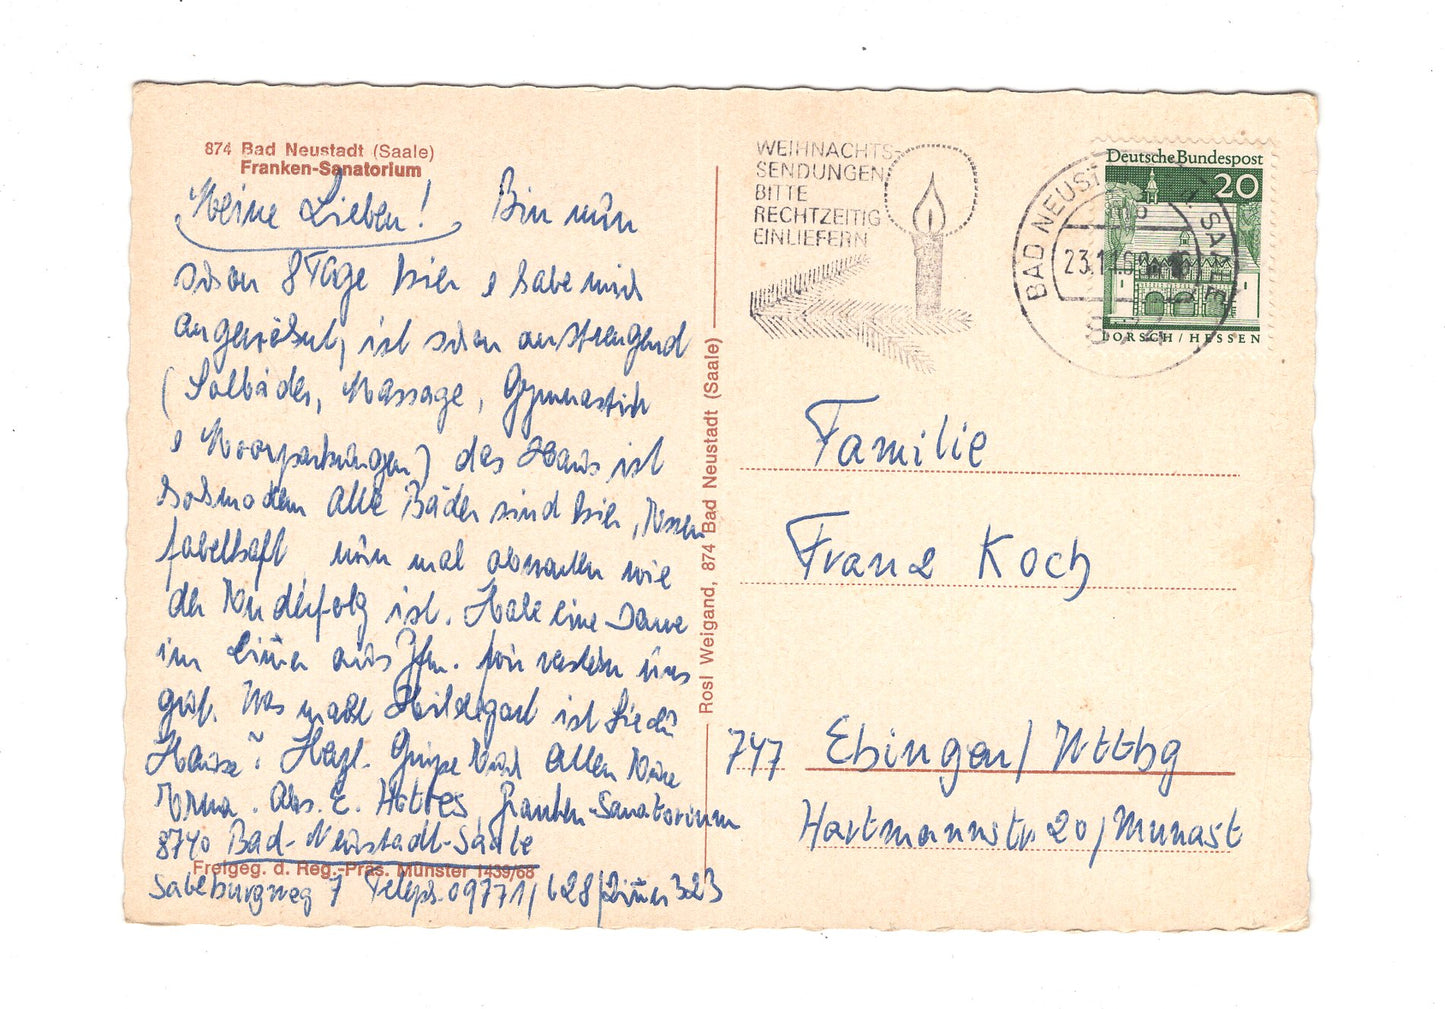 874 Bad Neustadt (Saale)
Franken-Sanatorium
Meine Lieben! Bin nun
schon 8 Tage hier & habe mich
angewöhnt, ist schon anstrengend
(Solbäder, Massage, Gymnastik
& Moorpackungen) das Haus ist
hochmodern alle Bäder sind hier, Essen
fabelhaft nun mal abwarten wie
der Kurerfolg ist. Habe eine Dame
im Zimmer aus wir verstehn uns
gut. Was macht Hildegart ist sie zu
Hause? Herzl. Grüße Euch allen Eure
Erna. Abs. E. Hottes, Franken-Sanatorium
8740 Bad-Neustadt-Saale
Freigeg. d. Reg.-Präs. Münster 1439/68
Salzburgweg 7 Teleph. 09771/628/Zimmer 323
Rosl Weigand, 874 Bad Neustadt (Saale)
WEIHNACHTS-
SENDUNGEN
BITTE
RECHTZEITIG
EINLIEFERN
BAD NEUSTADT SAALE
Deutsche Bundespost
20
LORSCH / HESSEN
Familie
Franz Koch
747 Ebingen / Wttbg
Hartmannstr. 20 / Munast